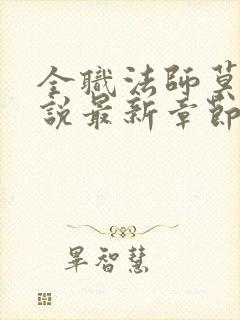 全職法師莫
說最新章節
畢智慧